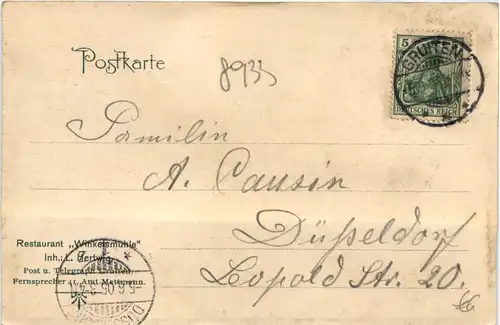 Postkarte
8933
5
GRUITEN
DEUTSCHES REICH
Familie
A. Causin
Düsseldorf
Leopold Str. 20.
Restaurant „Winkelsmühle"
Inh.: L. Hertwig
Post u. Telegraph Gruiten.
Fernsprecher Amt Mettmann.